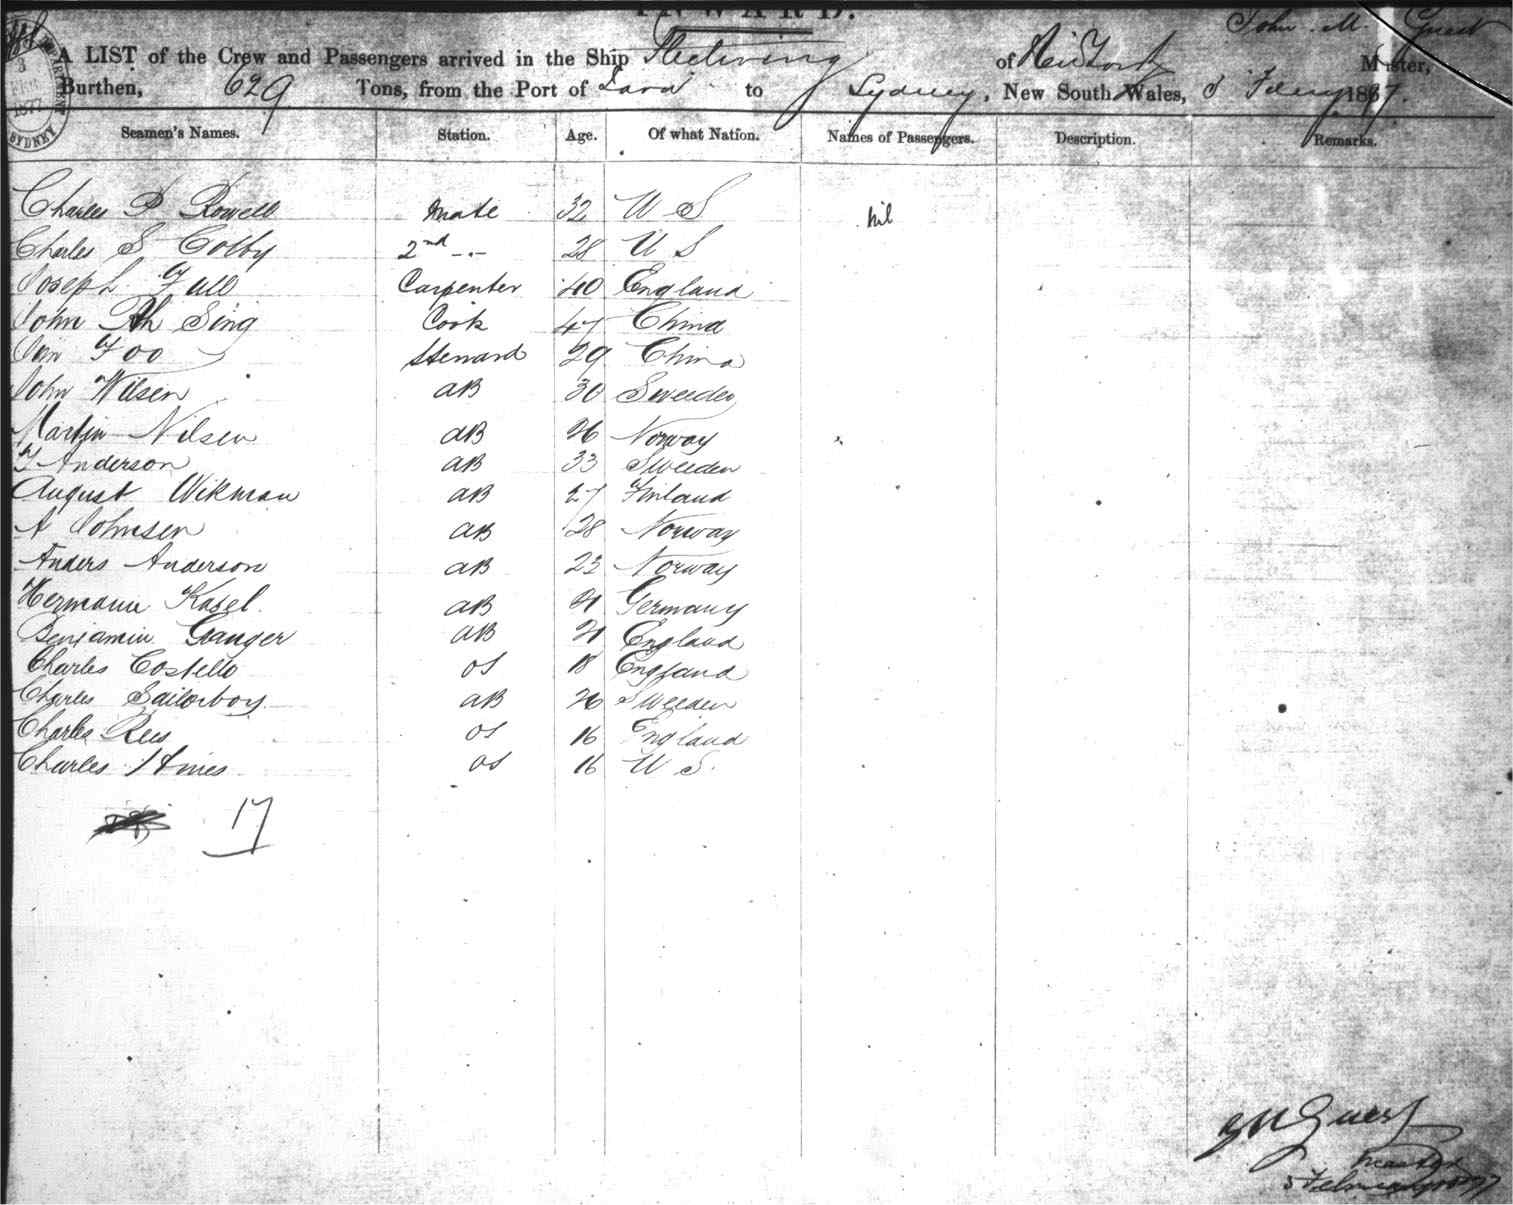 INWARD.
A LIST of the Crew and Passengers arrived in the Ship Fleetwing of New York John M. Guest Master,
Burthen, 629 Tons, from the Port of to Sydney, New South Wales, 3 Febry 1877.
Seamen's Names. Station. Age. Of what Nation. Names of Passengers. Description. Remarks.
Charles P Rowell Mate 32 U S Nil
Charles S Colby 2nd -.- 28 U S
Joseph Full Carpenter 40 England
John Ah Sing Cook 47 China
Foo Steward 29 China
John Wilsen AB 30 Sweeden
Martin Nilsen AB 26 Norway
Anderson AB 33 Sweeden
August Wikman AB 27 Finland
A Johnsen AB 28 Norway
Anders Anderson AB 23 Norway
Hermann Kasel. AB 21 Germany
Benjamin Granger AB 21 England
Charles Costello OS 18 England
Charles Sailorboy AB 26 Sweeden
Charles Rees OS 16 England
Charles Himes OS 16 U S.
17
Guest
Master